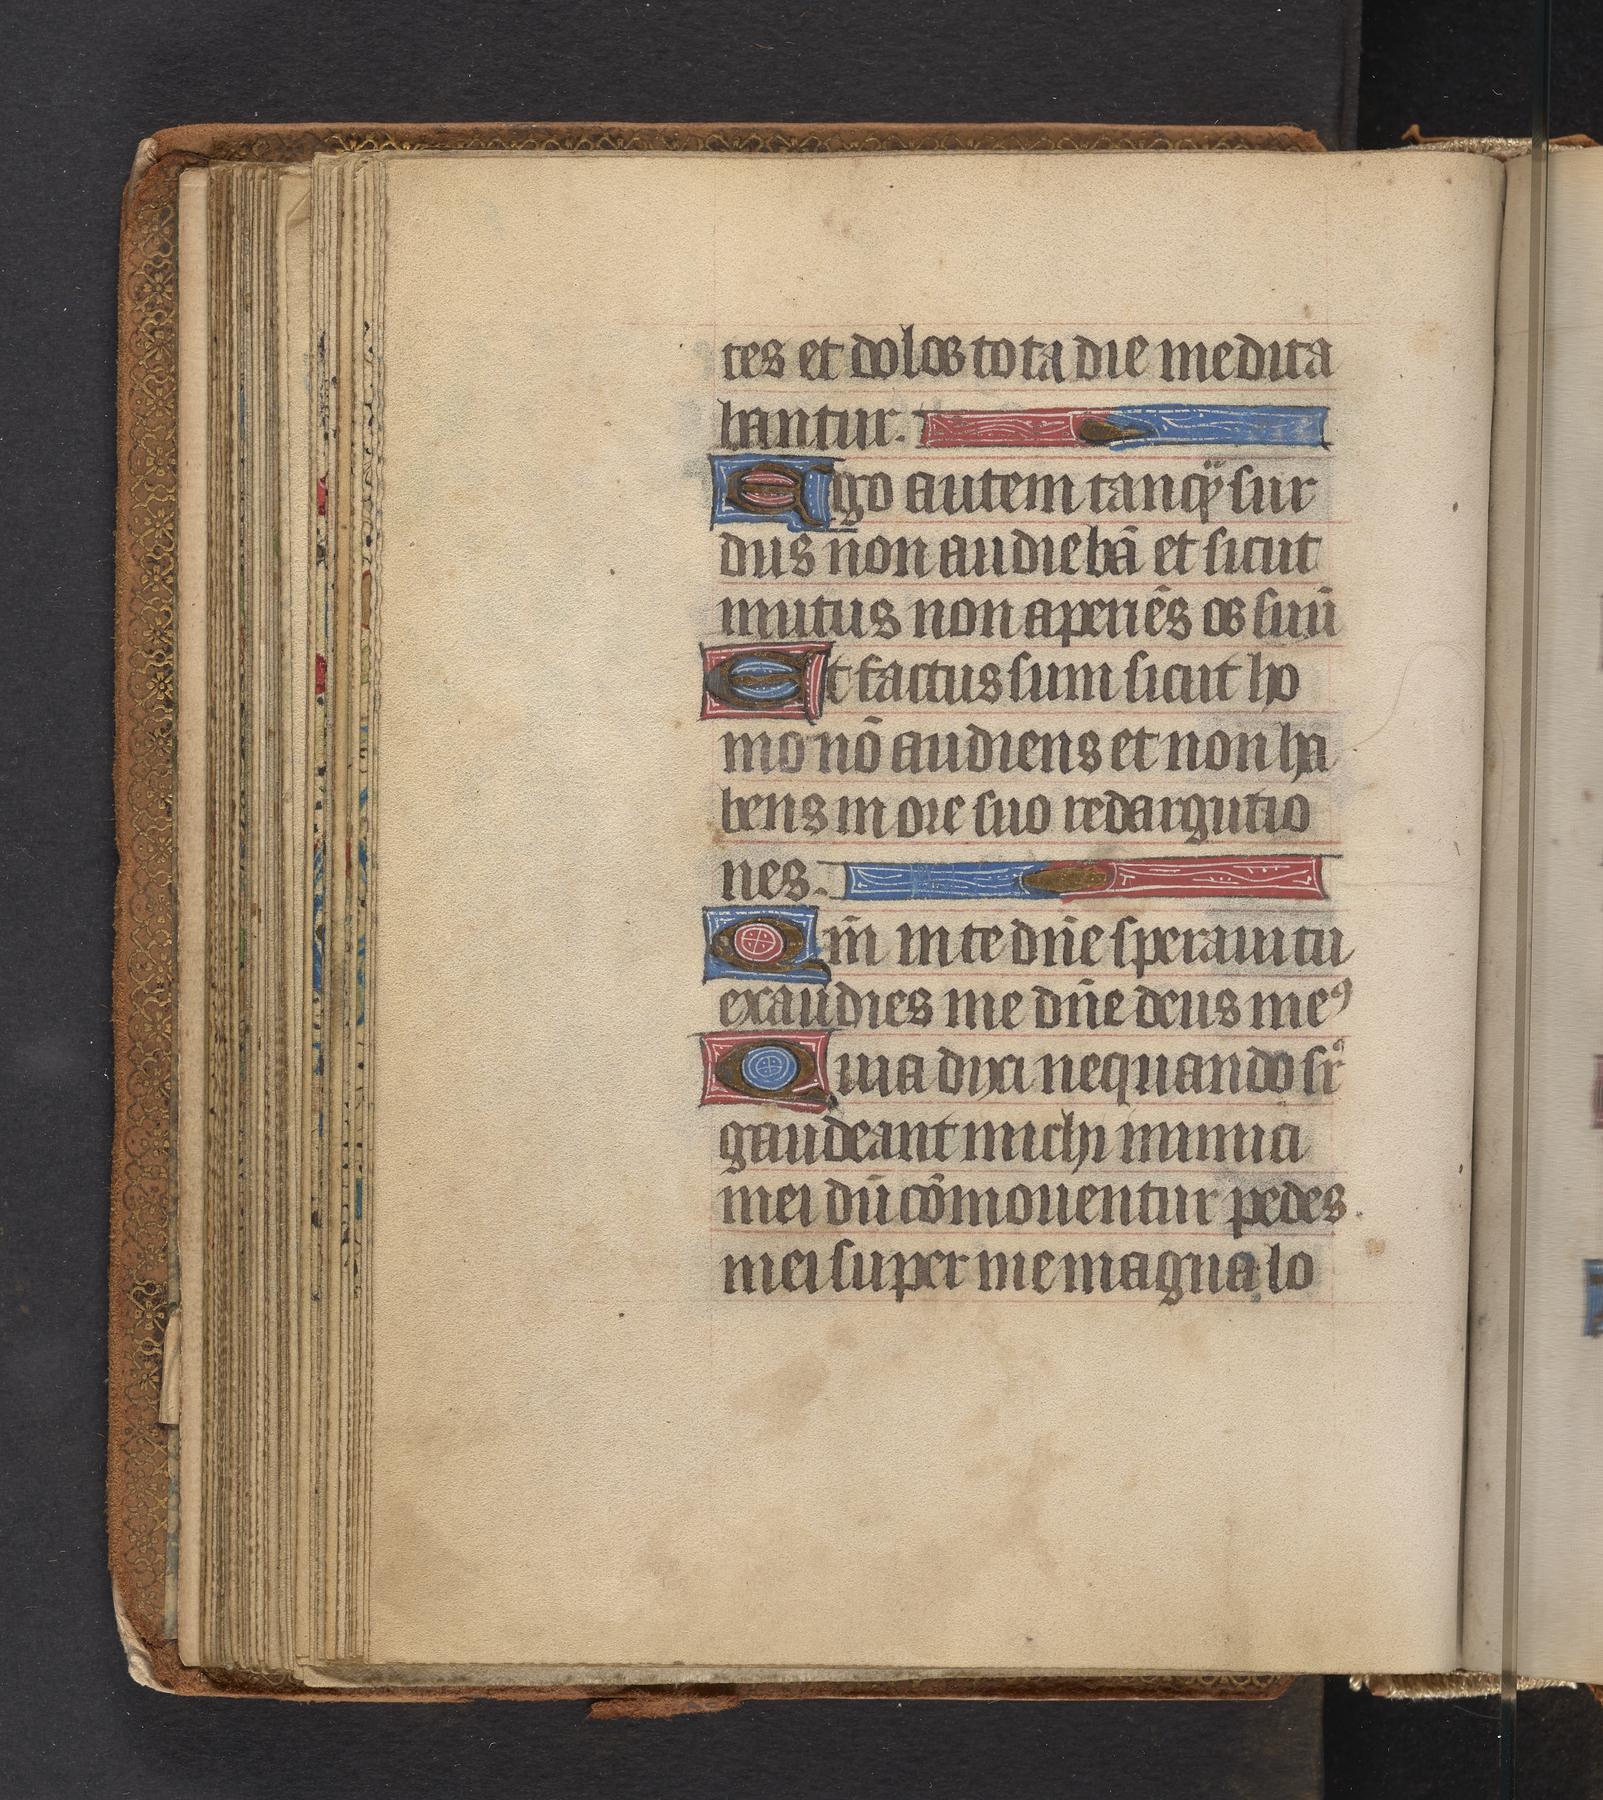 tes et dolos tota die medita
bantur.
Ego autem tanq̈ sur
dus non audiebā et sicut
mutus non aperiēs os suū
Et factus sum sicut ho
mo nō audiens et non ha
bens in ore suo redargutio
nes.
Qm̄ in te dn̄e speraui tu
exaudies me dn̄e deus meꝰ
Quia dixi nequando sr̄
gaudeant michi inimici
mei dū cōmouentur pedes
mei super me magna lo